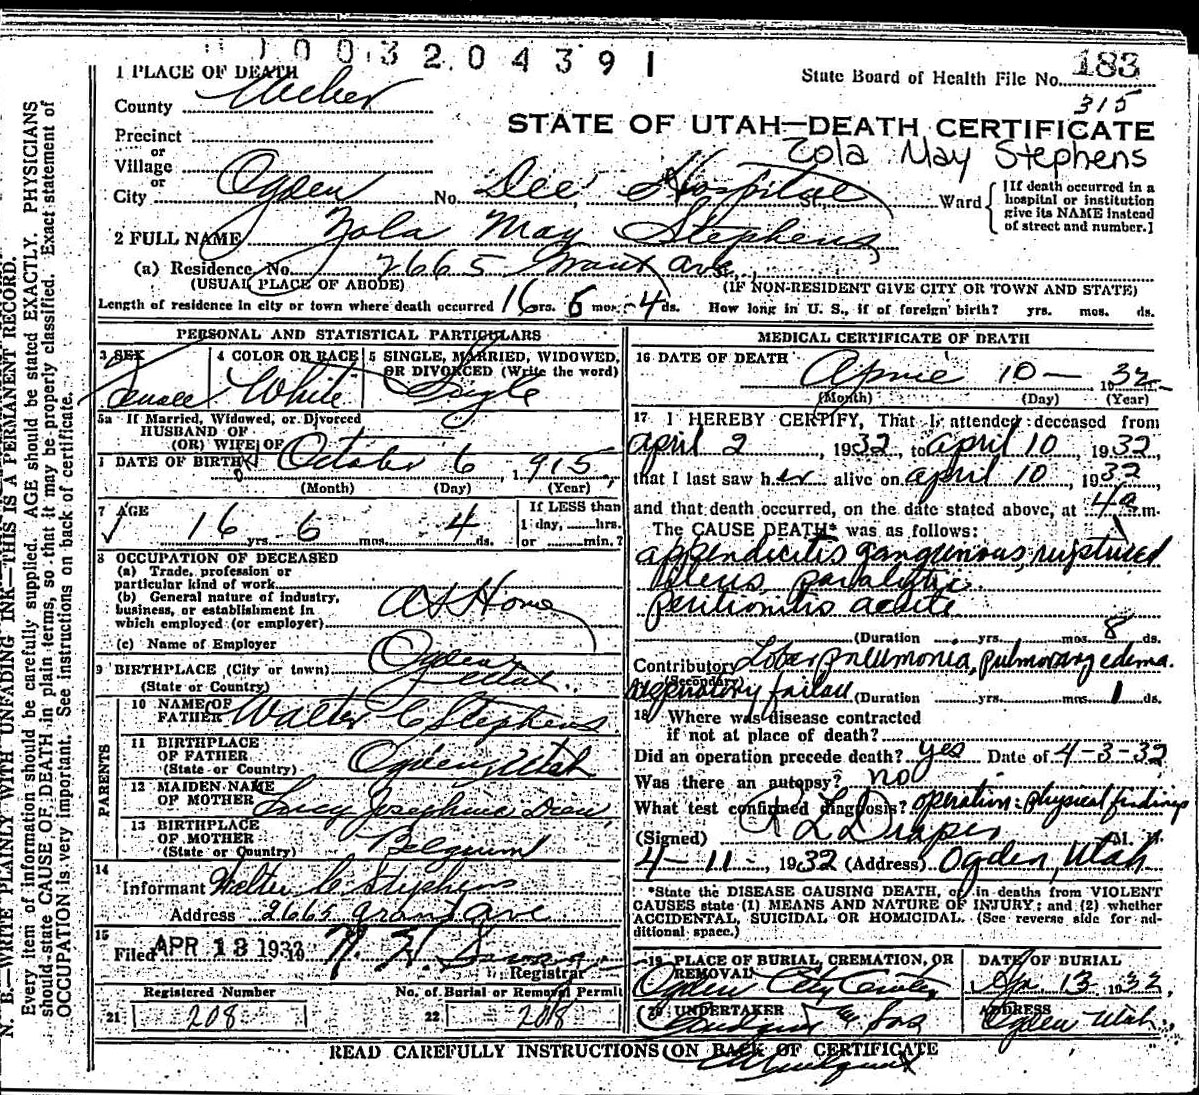 1003204391
183
State Board of Health File No.
315
1 PLACE OF DEATH
County Weber
Precinct
or
Village
or
City Ogden No. Dee Hospital St. Ward
[If death occurred in a
hospital or institution
give its NAME instead
of street and number.]
STATE OF UTAH—DEATH CERTIFICATE
Zola May Stephens
2 FULL NAME Zola May Stephens
(a) Residence No. 2665 Grant Ave. St.,
(USUAL PLACE OF ABODE) (IF NON-RESIDENT GIVE CITY OR TOWN AND STATE)
Length of residence in city or town where death occurred 16 yrs. 6 mos. 4 ds. How long in U. S., if of foreign birth? yrs. mos. ds.
PERSONAL AND STATISTICAL PARTICULARS
3 SEX Female
4 COLOR OR RACE White
5 SINGLE, MARRIED, WIDOWED,
OR DIVORCED (Write the word)
Single
5a If Married, Widowed, or Divorced
HUSBAND OF
(OR) WIFE OF
DATE OF BIRTH October 6 1915
(Month) (Day) (Year)
7 AGE 16 yrs. 6 mos. 4 ds.
If LESS than
1 day, hrs.
or min.?
8 OCCUPATION OF DECEASED
(a) Trade, profession or
particular kind of work
(b) General nature of industry,
business, or establishment in
which employed (or employer)
At Home
(c) Name of Employer
9 BIRTHPLACE (City or town) Ogden
(State or Country) Utah
PARENTS
10 NAME OF
FATHER Walter C Stephens
11 BIRTHPLACE
OF FATHER
(State or Country) Ogden, Utah
12 MAIDEN NAME
OF MOTHER Lucy Josephine
13 BIRTHPLACE
OF MOTHER
(State or Country) Belgium
14
Informant Walter C. Stephens
Address 2665 Grant Ave
15
Filed APR 13 193
Registrar
Registered Number
21 208
No. of Burial or Removal Permit
22 208
MEDICAL CERTIFICATE OF DEATH
16 DATE OF DEATH
April 10 — 1932
(Month) (Day) (Year)
17 I HEREBY CERTIFY, That I attended deceased from
April 2, 1932, to April 10, 1932,
that I last saw her alive on April 10, 1932
and that death occurred, on the date stated above, at 4 a.m.
The CAUSE DEATH* was as follows:
appendicitis gangrenous, ruptured
Ileus, paralytic.
peritionitis acute
(Duration yrs. mos. 8 ds.
Contributory Lobar pneumonia, pulmonary edema.
(Secondary)
respiratory failure (Duration yrs. mos. 1 ds.
18 Where was disease contracted
if not at place of death?
Did an operation precede death? yes Date of 4-3-32
Was there an autopsy? no
What test confirmed diagnosis? operation: physical findings
(Signed) R L Draper M. D.
4-11-, 1932 (Address) Ogden, Utah
*State the DISEASE CAUSING DEATH, or in deaths from VIOLENT
CAUSES state (1) MEANS AND NATURE OF INJURY; and (2) whether
ACCIDENTAL, SUICIDAL OR HOMICIDAL. (See reverse side for ad-
ditional space.)
19 PLACE OF BURIAL, CREMATION, OR
REMOVAL
Ogden City
DATE OF BURIAL
Apr. 13 1932,
20 UNDERTAKER
ADDRESS
Ogden Utah.
READ CAREFULLY INSTRUCTIONS ON BACK OF CERTIFICATE
N. B.—WRITE PLAINLY WITH UNFADING INK—THIS IS A PERMANENT RECORD.
Every item of information should be carefully supplied. AGE should be stated EXACTLY. PHYSICIANS
should state CAUSE OF DEATH in plain terms, so that it may be properly classified. Exact statement of
OCCUPATION is very important. See instructions on back of certificate.